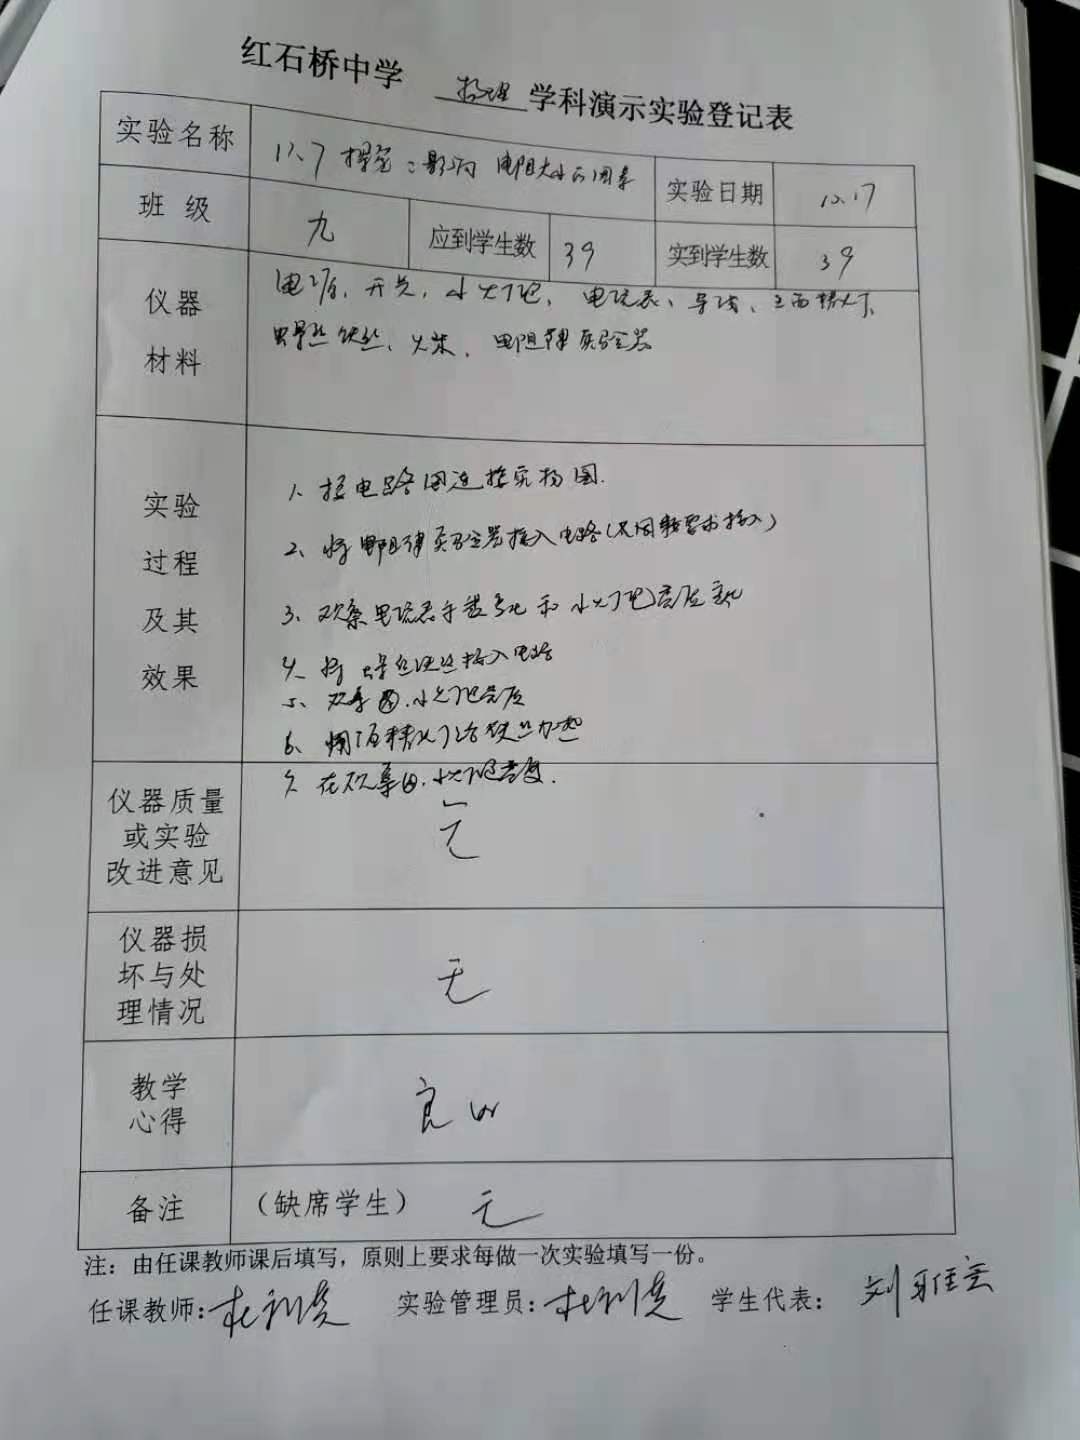 红石桥中学 物理 学科演示实验登记表
实验名称 12.7 探究:影响电阻大小的因素 实验日期 12.17
班级 九 应到学生数 39 实到学生数 39
仪器 电源、开关、小灯泡、电流表、导线、
材料 铁丝、火柴、电阻律实验器
1、按电路图连接实物图.
实验 2、将电阻律实验器接入电路(
过程 3、观察电流表示数变化和小灯泡亮度变化
及其 4、将 铁丝接入电路
效果 5、观察 小灯泡亮度
6、用酒精灯给铁丝加热
7、在观察 小灯泡亮度.
仪器质量
或实验 无
改进意见
仪器损
坏与处 无
理情况
教学 良好
心得
备注 (缺席学生) 无
注:由任课教师课后填写,原则上要求每做一次实验填写一份。
任课教师: 实验管理员: 学生代表: